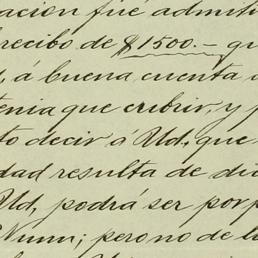 acion fué admiti
recibo de $1500.- qu
, á buena cuenta
tenia que cubrir, y p
to decir á Ud, que
dad resulta de di
Ud, podrá ser por p
Num; pero no de la